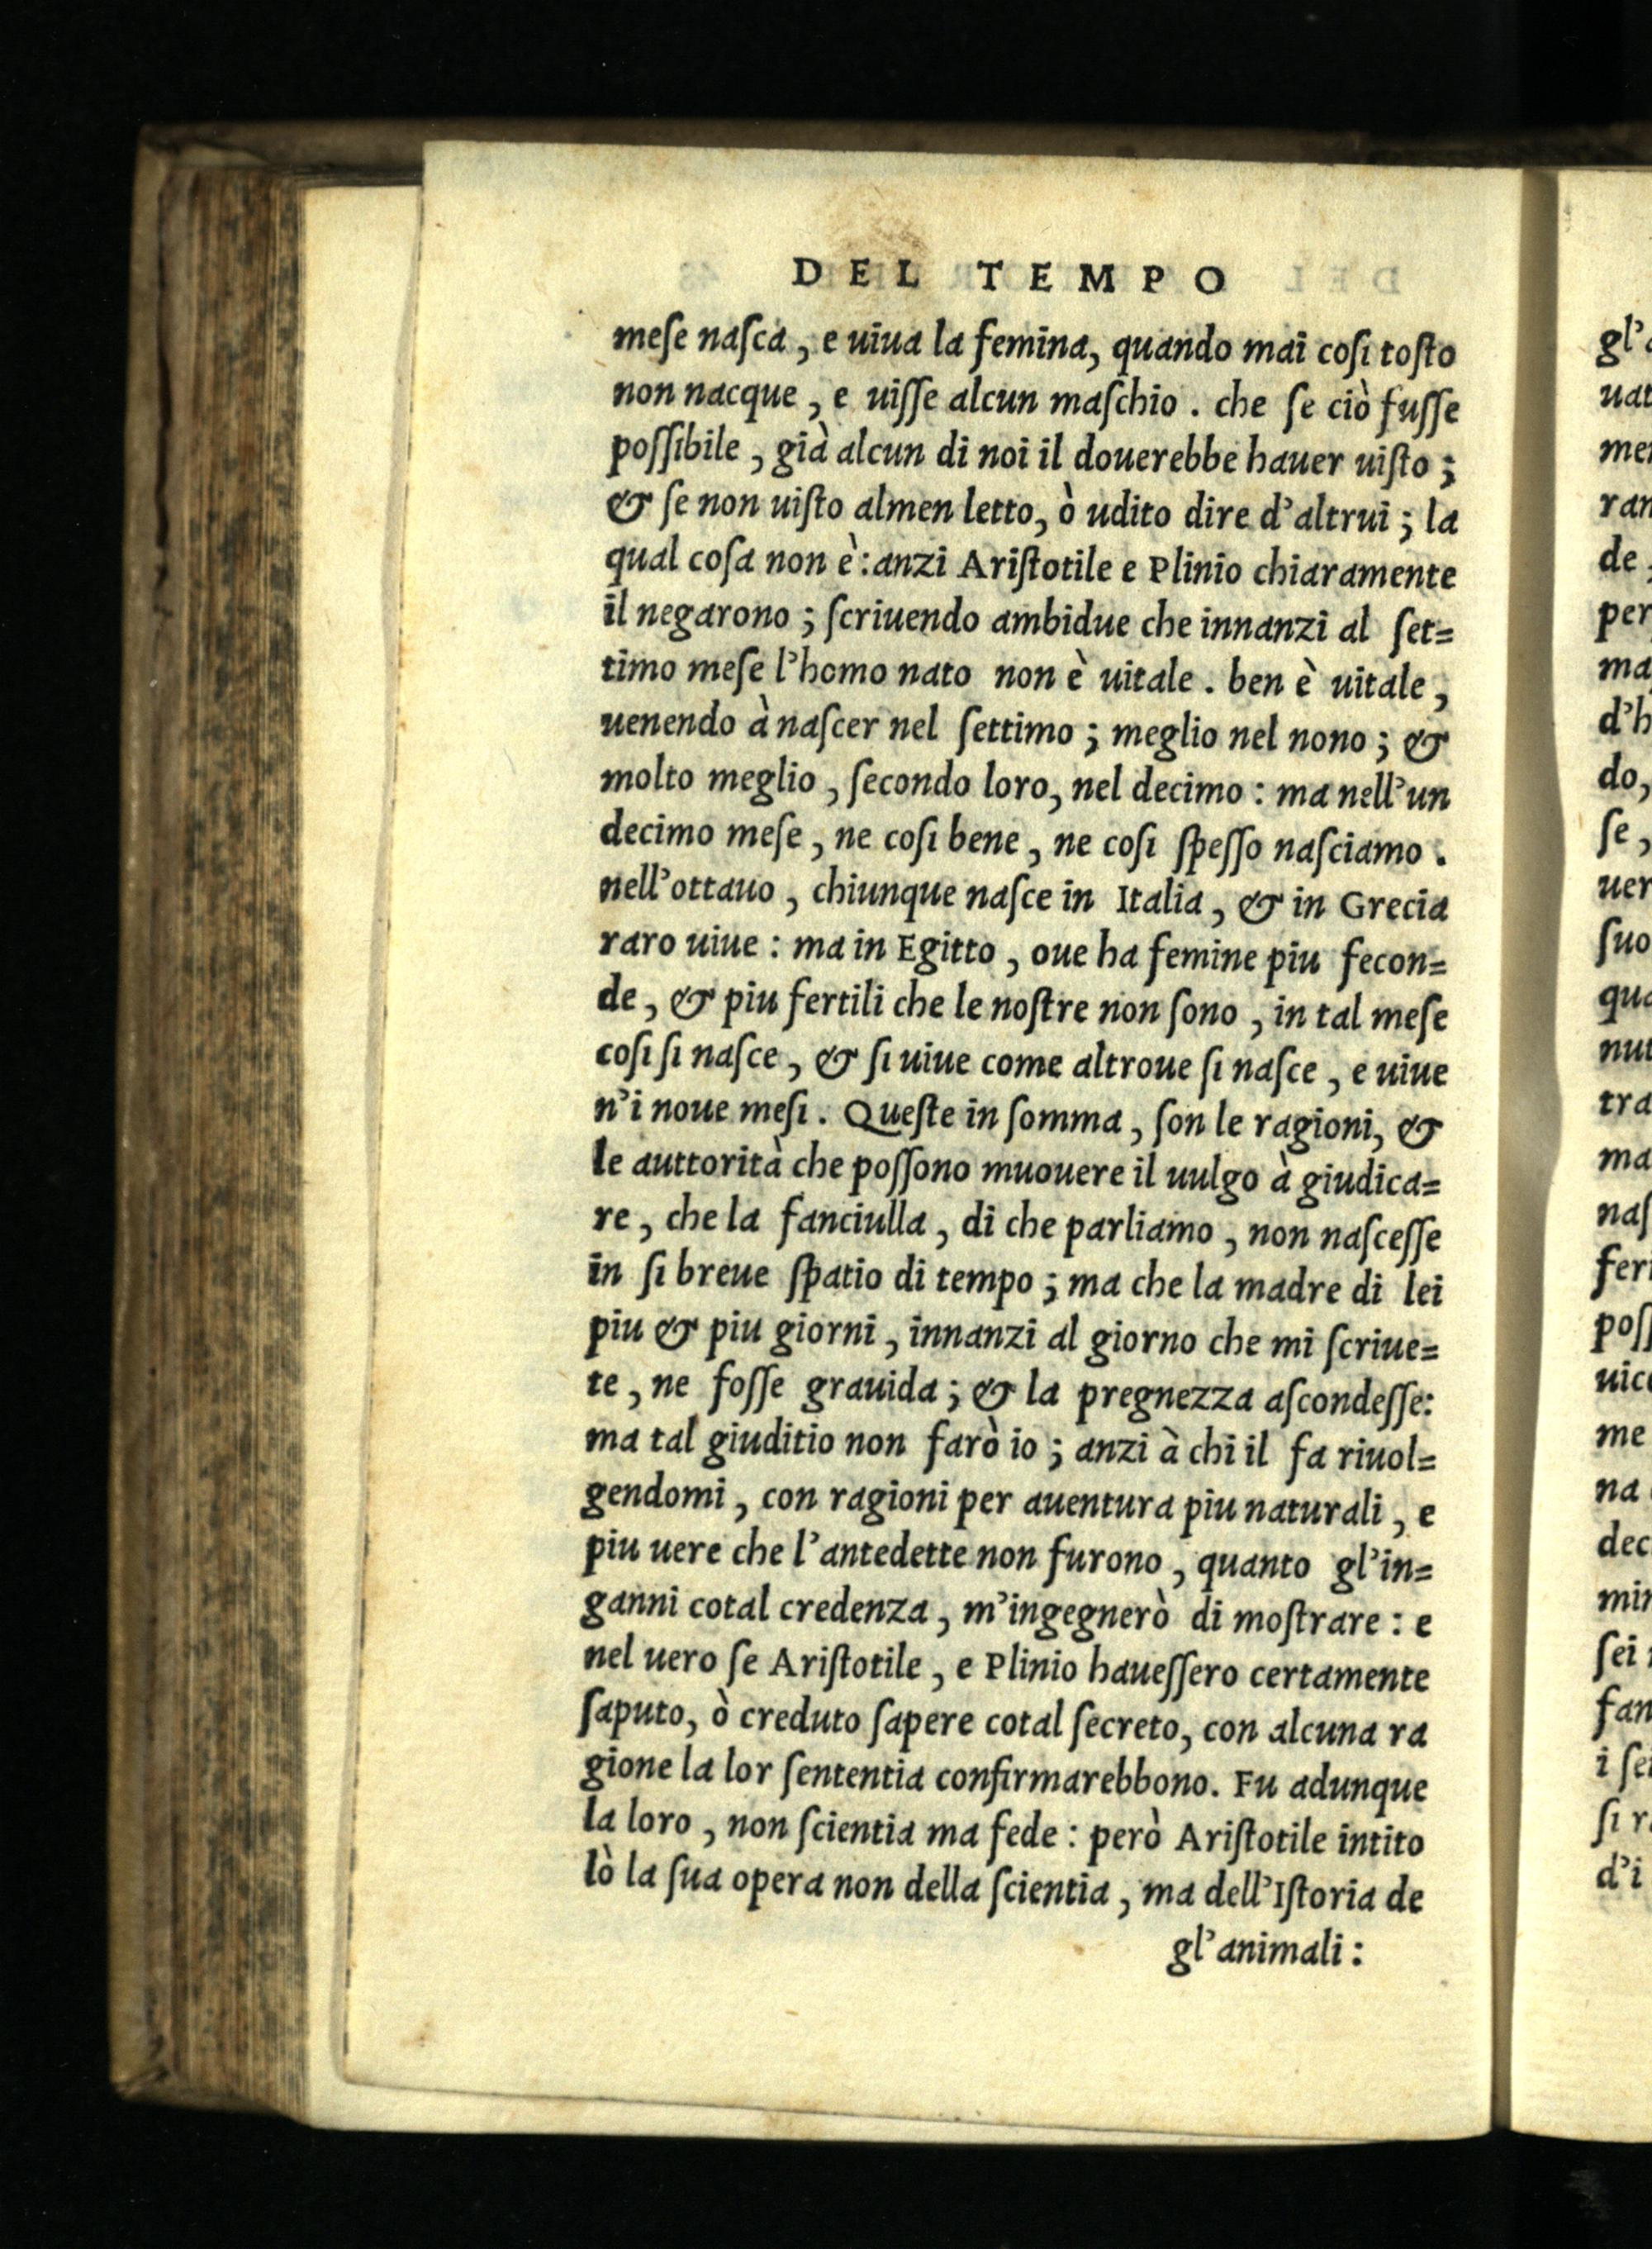 DEL TEMPO
meſe naſca, e uiua la femina, quando mai coſi toſto
non nacque, e uiſſe alcun maſchio. che ſe ciò fuſſe
poſſibile, già alcun di noi il douerebbe hauer uiſto;
& ſe non uiſto almen letto, ò udito dire d'altrui; la
qual coſa non è: anzi Ariſtotile e Plinio chiaramente
il negarono; ſcriuendo ambidue che innanzi al ſet=
timo meſe l'homo nato non è uitale. ben è uitale,
uenendo à naſcer nel ſettimo; meglio nel nono; &
molto meglio, ſecondo loro, nel decimo: ma nell'un
decimo meſe, ne coſi bene, ne coſi ſpeſſo naſciamo.
nell'ottauo, chiunque naſce in Italia, & in Grecia
raro uiue: ma in Egitto, oue ha femine piu fecon=
de, & piu fertili che le noſtre non ſono, in tal meſe
coſi ſi naſce, & ſi uiue come altroue ſi naſce, e uiue
n'i noue meſi. Queſte in ſomma, ſon le ragioni, &
le auttorità che poſſono muouere il uulgo à giudica=
re, che la fanciulla, di che parliamo, non naſceſſe
in ſi breue ſpatio di tempo; ma che la madre di lei
piu & piu giorni, innanzi al giorno che mi ſcriue=
te, ne foſſe grauida; & la pregnezza aſcondeſſe:
ma tal giuditio non farò io; anzi à chi il fa riuol=
gendomi, con ragioni per auentura piu naturali, e
piu uere che l'antedette non furono, quanto gl'in=
ganni cotal credenza, m'ingegnerò di moſtrare: e
nel uero ſe Ariſtotile, e Plinio haueſſero certamente
ſaputo, ò creduto ſapere cotal ſecreto, con alcuna ra
gione la lor ſententia confirmarebbono. Fu adunque
la loro, non ſcientia ma fede: però Ariſtotile intito
lò la ſua opera non della ſcientia, ma dell'Iſtoria de
gl'animali: